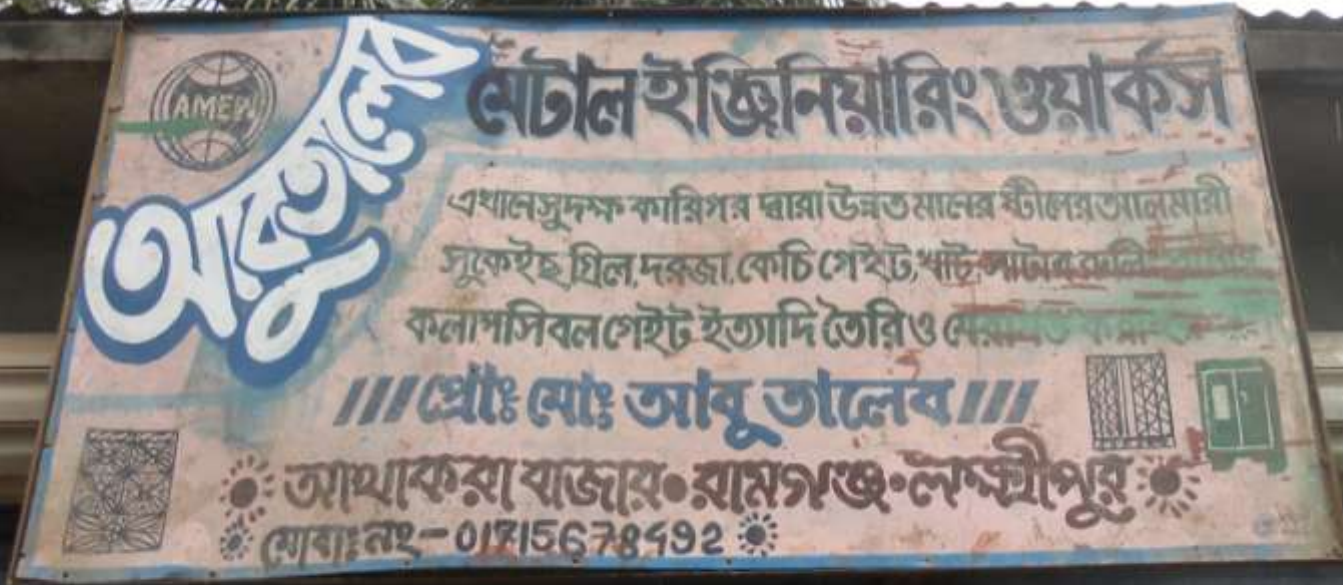 AMEW
আবুতালেব
মেটাল ইঞ্জিনিয়ারিং ওয়ার্কস
এখানে সুদক্ষ কারিগর দ্বারা উন্নত মানের ষ্টীলের আলমারী
সুকেইছ, গ্রিল, দরজা, কেচি গেইট, খাট,
কলাপসিবল গেইট ইত্যাদি তৈরি ও মেরামত
///প্রোঃ মোঃ আবু তালেব///
আথাকরা বাজার•রামগঞ্জ•লক্ষ্মীপুর
মোবাঃনং-01715678492